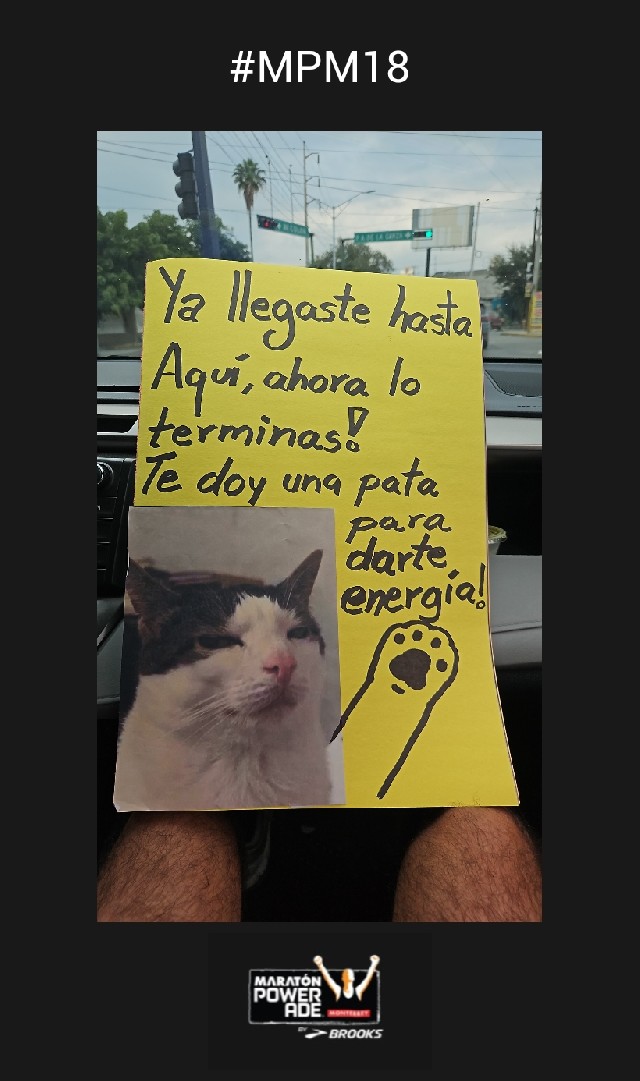 #MPM18
Ya llegaste hasta
Aquí, ahora lo
terminas!
Te doy una pata
para
darte
energía!
MARATÓN
POWER
ADE
MONTERREY
BY BROOKS